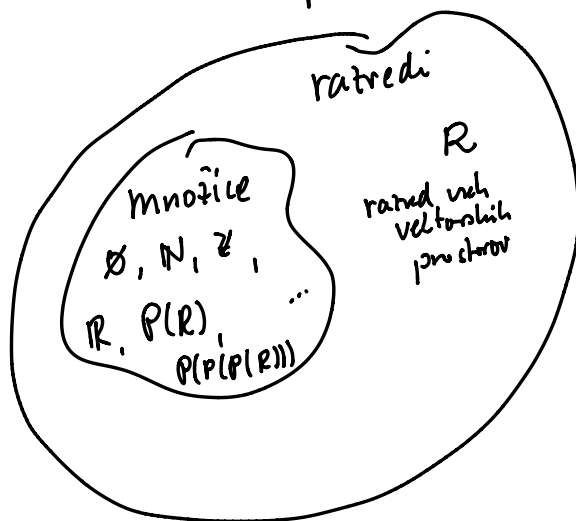 razredi
R
razred vseh
vektorskih
prostorov
množice
∅, ℕ, ℤ,
ℝ, P(ℝ), ...
P(P(P(ℝ)))